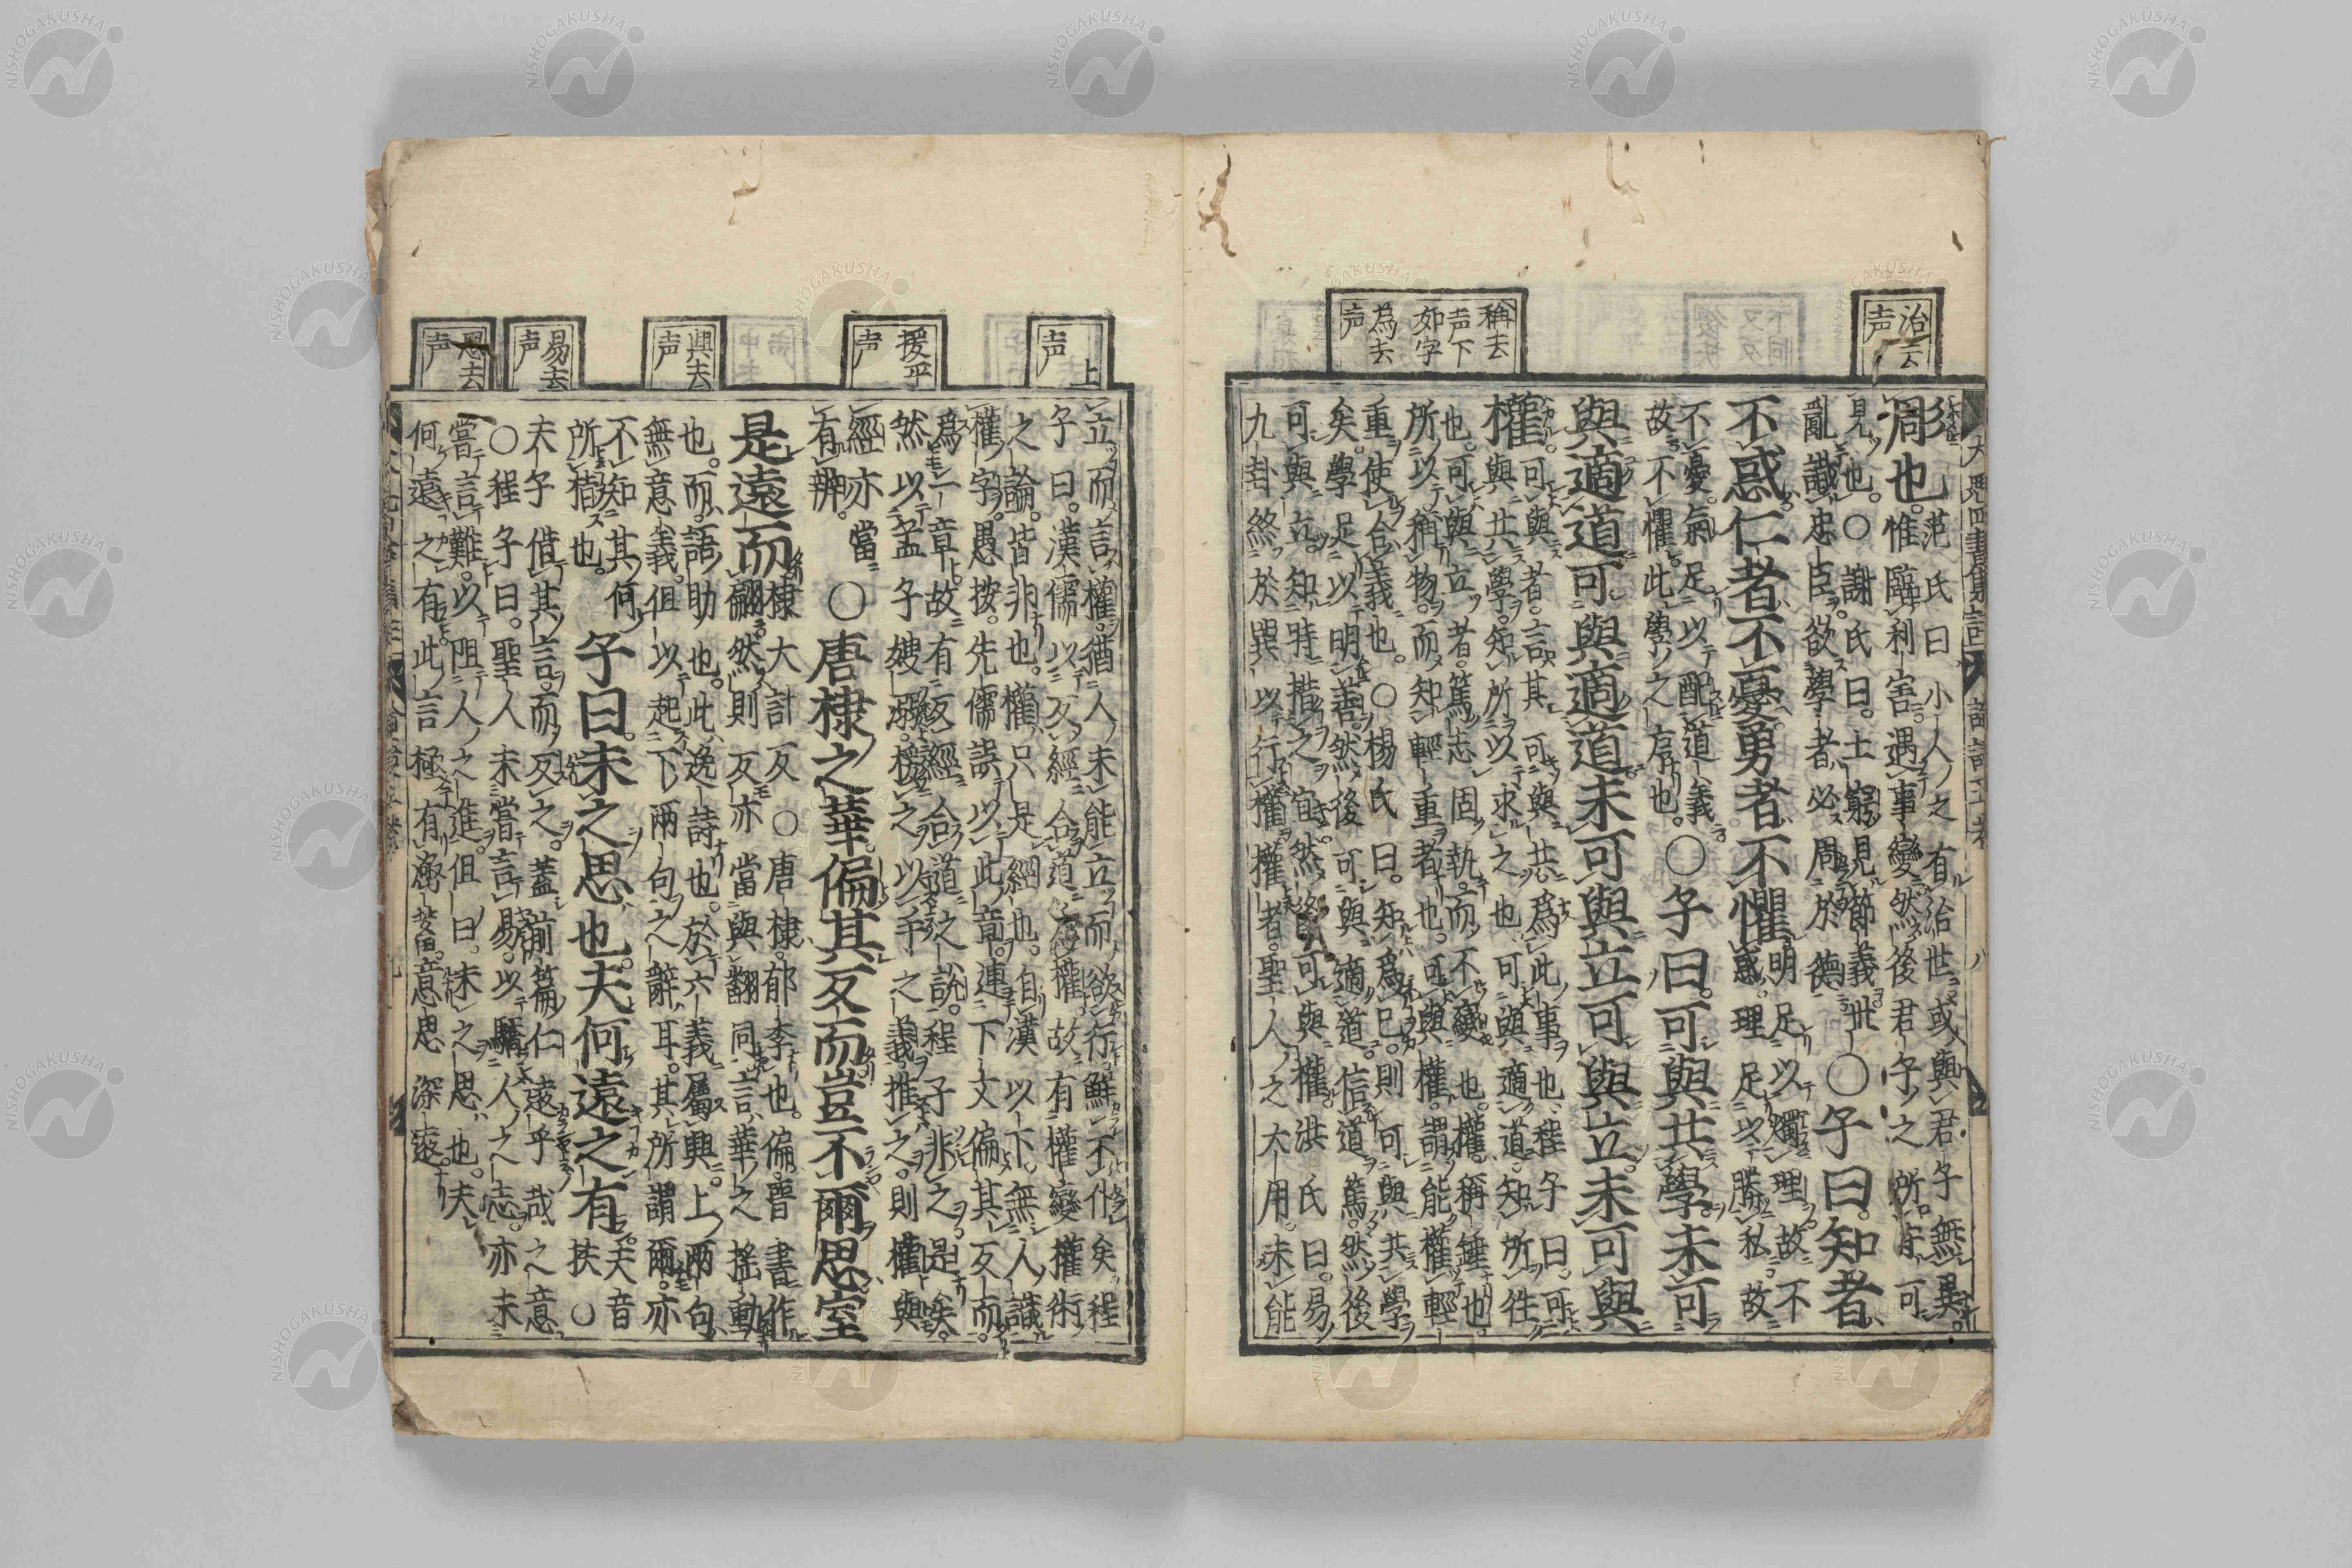 治去
声
稱去
声下
如字
爲去
声
彫也。
范氏曰小人之在治世或與君子無異。
惟臨利害遇事變然後君子之所守可
見也。○謝氏曰。士窮見節義世
亂識忠臣。欲學者必周於德
○子曰。知者
不惑仁者不憂勇者不懼
明足以燭理故不
惑。理足以勝私故
不憂。氣足以配道義
故不懼此學之序也。
○子曰。可與共學未可
與適道可與適道未可與立可與立未可與
權
可與者。言其可與共爲此事也、程子曰。可
與共學。知所以求之也可與適道、知所往
也。可與立者。篤志固執。而不變也。權。稱錘也。
所以稱物。而知輕重者也。可與權。謂能權輕
重。使合義也。○楊氏曰。知爲己。則可與共學
矣。學足以明善。然後可與適道。信道篤。然後
可與立。知時措之宜。然後可與權。洪氏曰。易
九卦終於巽以行權權者。聖人之大用。未能
上
声
援平
声
興去
声
易去
声
思去
声
立而言權。猶人未能立而欲行。鮮不仆矣程
子曰。漢儒以反經合道爲權故有權變權術
之論。皆非也。權只是經也。自漢以下。無人識
權字。愚按。先儒誤以此章。連下文偏其反而。
爲一章。故有反經合道之說。程子非之。是矣。
然以孟子嫂溺。援之以手之義。推之。則權與
經亦當
有辨。
○唐棣之華。偏其反而豈不爾思。室
是遠而
棣大計反○唐棣。郁李也。偏。晉書作
翩。然則反亦當與翻同言華之搖動
也。而。語助也。此逸詩也。於六義屬興。上兩句
無意義。但以起下兩句之辭耳。其所謂爾。亦
不知其何
所指也。
子曰。未之思也。夫何遠之有
夫音
扶○
夫子借其言。而反之。蓋前篇仁遠乎哉之意
○程子曰。聖人未嘗言易。以驕人之志。亦未
嘗言難。以阻人之進。但曰。未之思也。夫
何遠之有此言極有涵蓄。意思深遠。